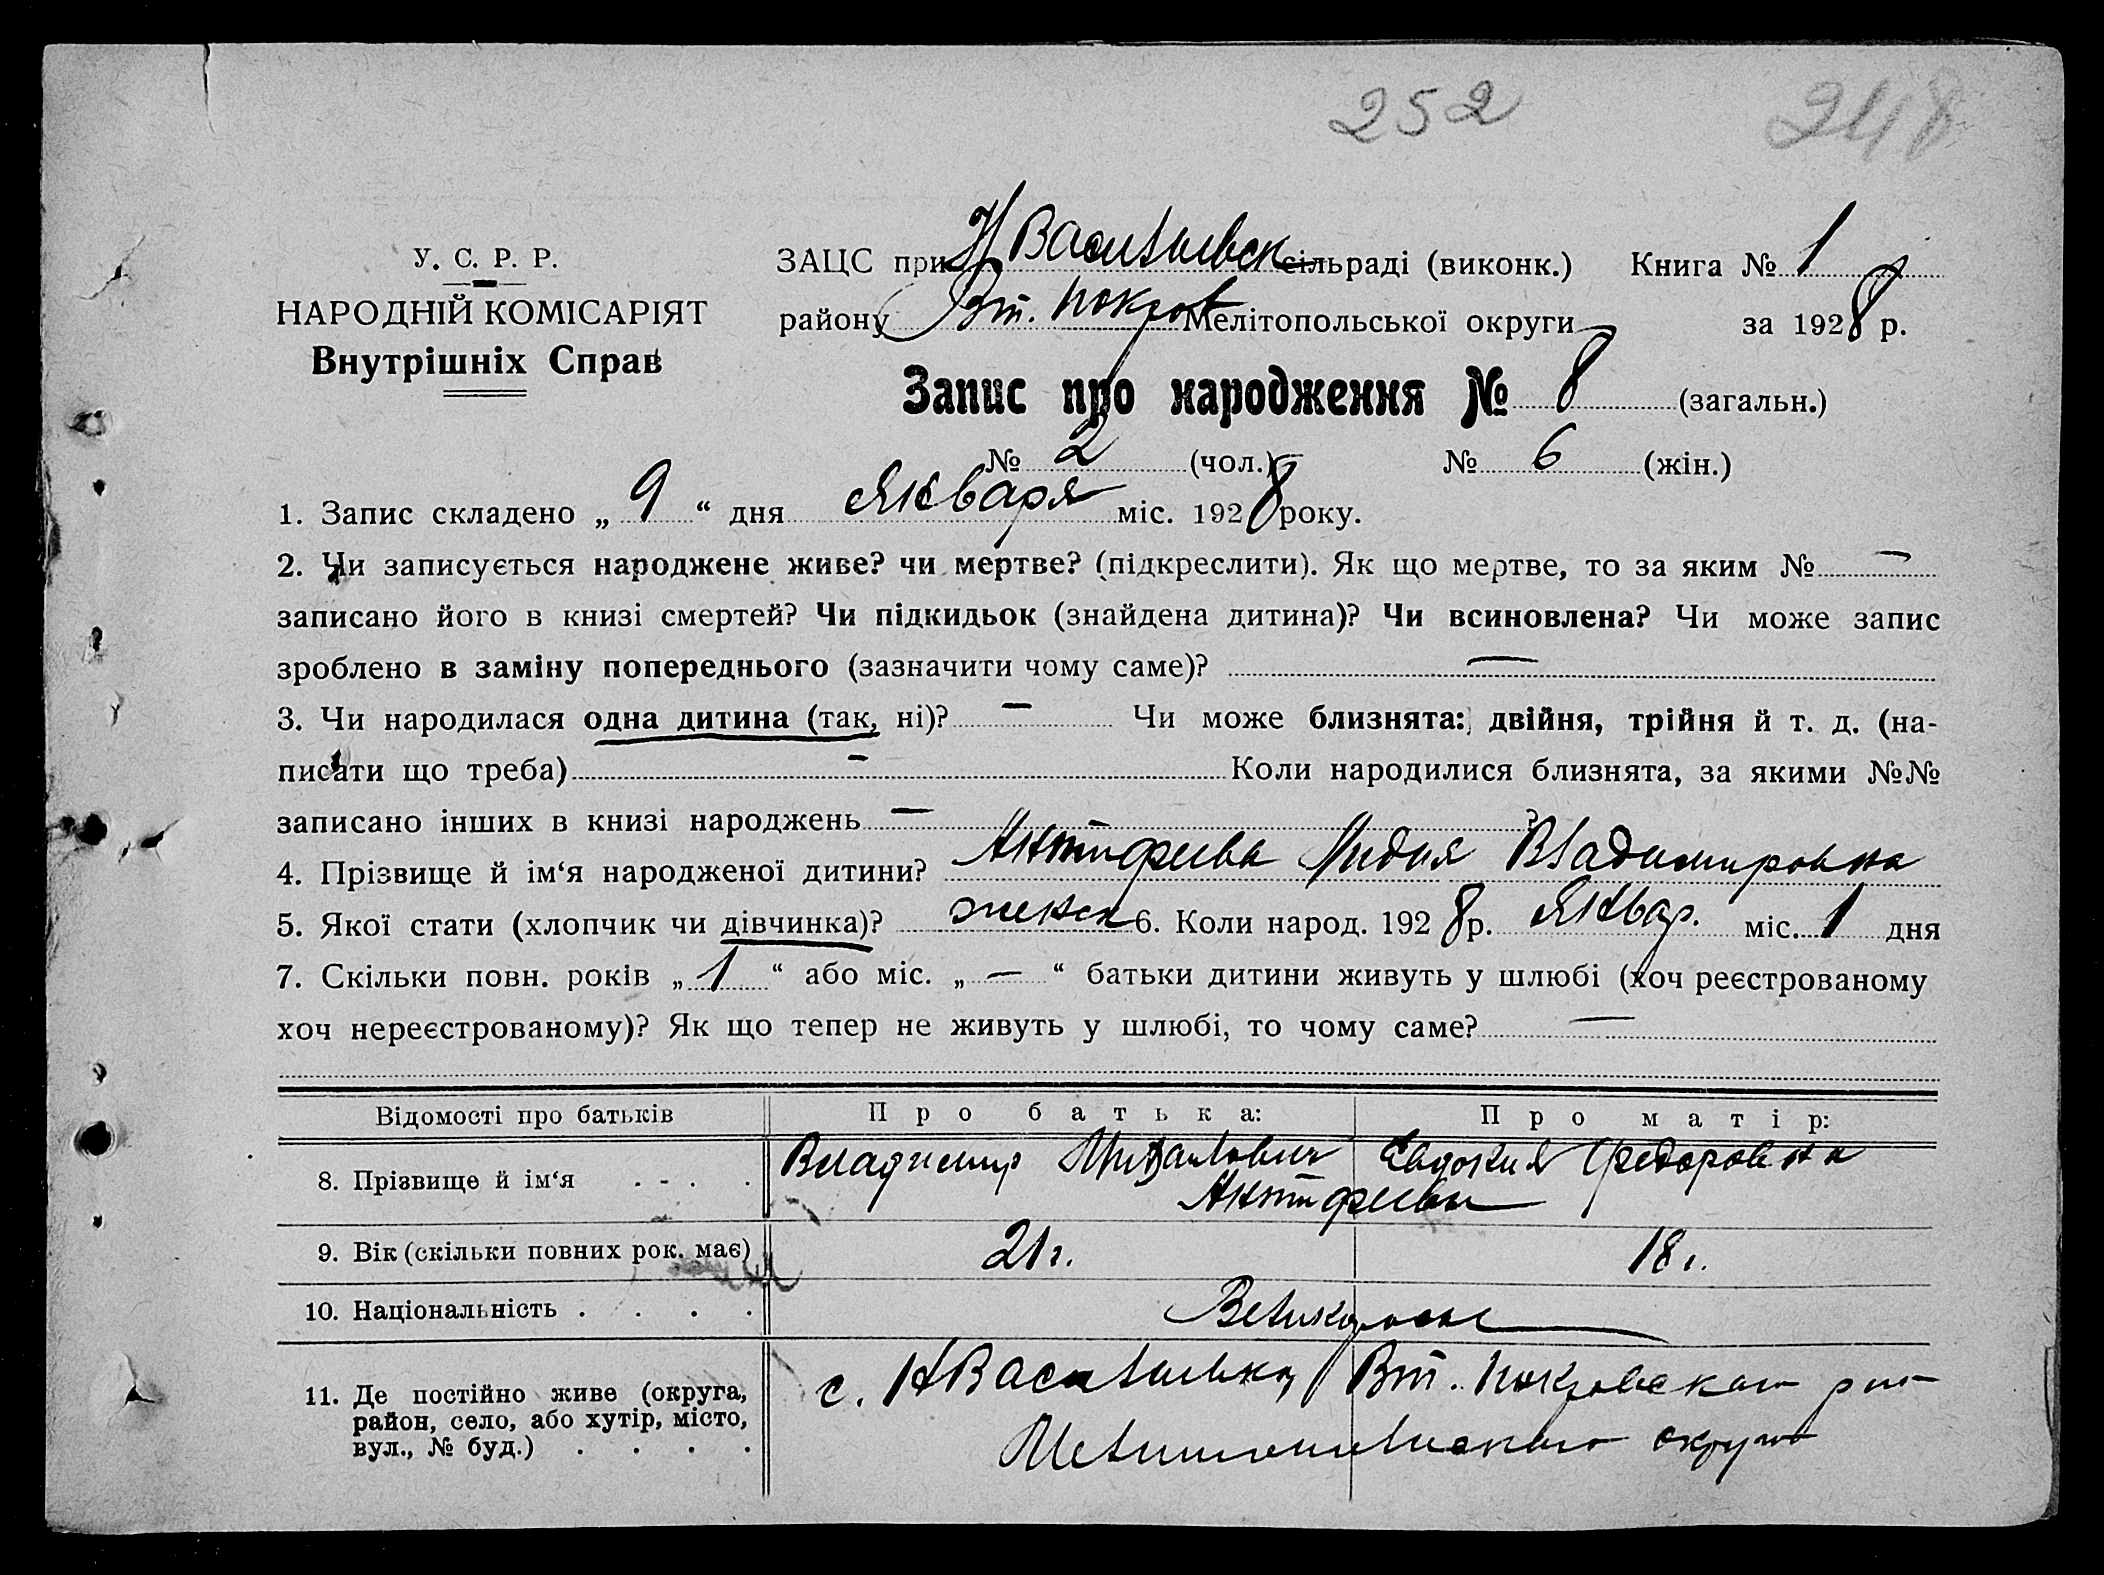 252 248
У. С. Р. Р.
НАРОДНІЙ КОМІСАРІЯТ
Внутрішніх Справ
ЗАЦС при Н Васильевск сільраді (виконк.) Книга № 1
району Вт. Покров Мелітопольської округи за 1928 р.
Запис про народження № 8 (загальн.)
№ 2 (чол.) № 6 (жін.)
1. Запис складено „ 9 “ дня Января міс. 1928 року.
2. Чи записується народжене живе? чи мертве? (підкреслити). Як що мертве, то за яким № —
записано його в книзі смертей? Чи підкидьок (знайдена дитина)? Чи всиновлена? Чи може запис
зроблено в заміну попереднього (зазначити чому саме)? —
3. Чи народилася одна дитина (так, ні)? — Чи може близнята: двійня, трійня й т. д. (на-
писати що треба) — Коли народилися близнята, за якими №№
записано інших в книзі народжень — ?
4. Прізвище й ім‘я народженої дитини? Антифеева Лидия Владимировна
5. Якої стати (хлопчик чи дівчинка)? женск 6. Коли народ. 1928 р. Январ. міс. 1 дня
7. Скільки повн. років „ 1 “ або міс. „ — “ батьки дитини живуть у шлюбі (хоч реєстрованому
хоч нереєстрованому)? Як що тепер не живуть у шлюбі, то чому саме? —
Відомості про батьків Про батька: Про матір:
8. Прізвище й ім‘я Владимир Михайлович Евдокия Федоровна
Антифеевы
9. Вік (скільки повних рок. має) 21 г. 18 г.
10. Національність Великороссы
11. Де постійно живе (округа, район, село, або хутір, місто, вул., № буд.) с. НВасильевка, Вт. Покровского р
Мелитопольского округа